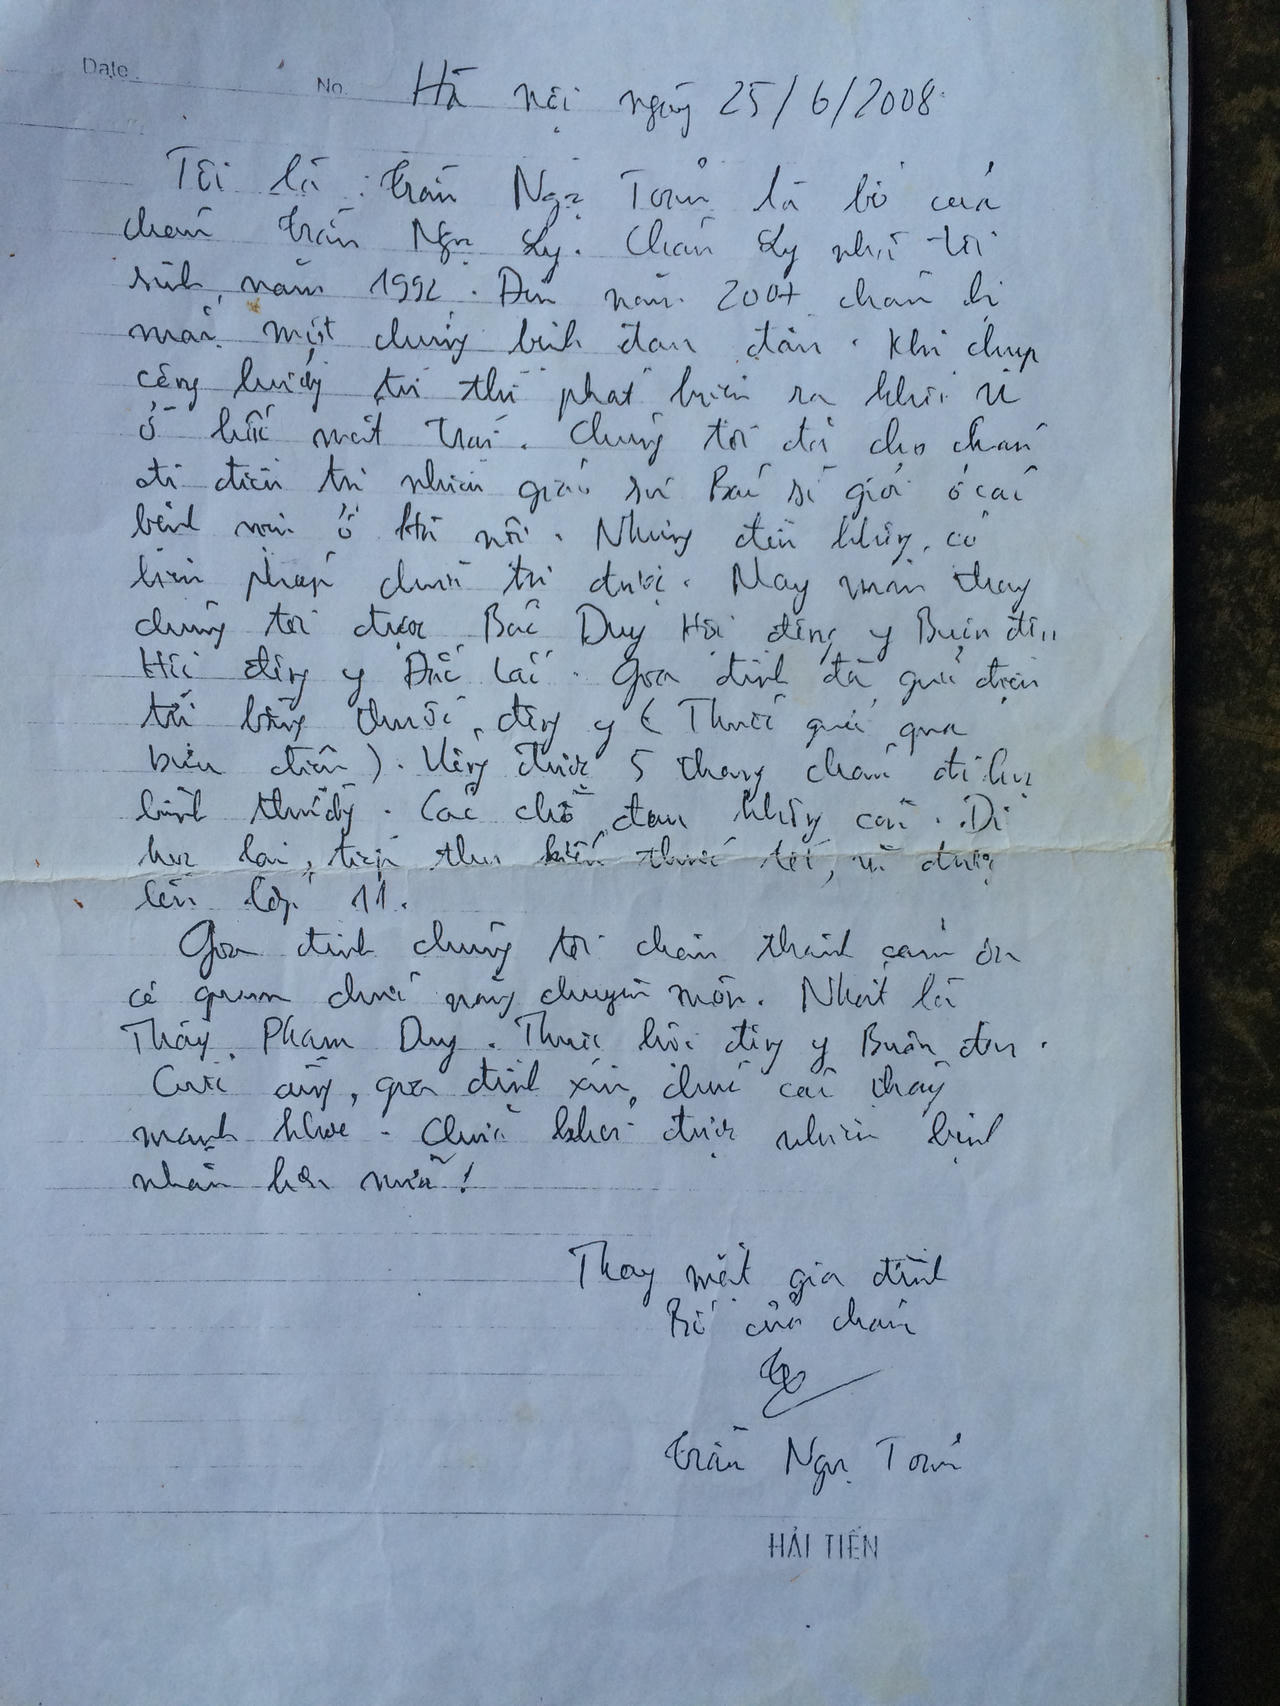 Date No. Hà nội ngày 25/6/2008
Tôi là : Trần Ngọc Toản là bố của
cháu Trần Ngọc Ly. Cháu Ly nhà tôi
sinh năm 1992. Đến năm 2007 cháu bị
mắc một chứng bệnh đau đầu. Khi chụp
cộng hưởng từ thì phát hiện ra khối u
ở hốc mắt trái. Chúng tôi đã cho cháu
đi điều trị nhiều giáo sư Bác sĩ giỏi ở các
bệnh viện ở Hà nội. Nhưng đều không có
biện pháp chữa trị được. May mắn thay
chúng tôi được Bác Duy Hội đông y Buôn đôn
Hội đông y Đắc Lắc. Gia đình đã gửi điều
trị bằng thuốc đông y (Thuốc gửi qua
bưu điện). Uống được 5 tháng cháu đi học
bình thường. Các chỗ đau không còn. Đi
học lại, tiếp thu kiến thức tốt, và được
lên lớp 11.
Gia đình chúng tôi chân thành cảm ơn
cơ quan chức năng chuyên môn. Nhất là
Thầy Phạm Duy. Thuộc hội đông y Buôn đôn.
Cuối cùng, gia đình xin chúc các thầy
mạnh khỏe. Chữa khỏi được nhiều bệnh
nhân hơn nữa!
Thay mặt gia đình
Bố của cháu
Trần Ngọc Toản
HẢI TIẾN